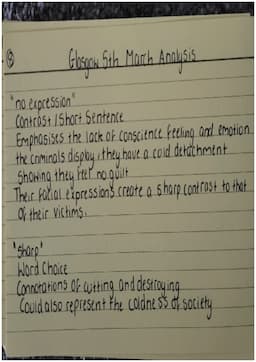 Glasgow 5th March Analysis
"no expression"
Contrast / Short Sentence
Emphasises the lack of conscience feeling and emotion
the criminals display, they have a cold detachment
showing they feel no guilt
Their facial expressions create a sharp contrast to that
of their victims.
"sharp"
Word Choice
Connotations of cutting and destroying
Could also represent the coldness of society